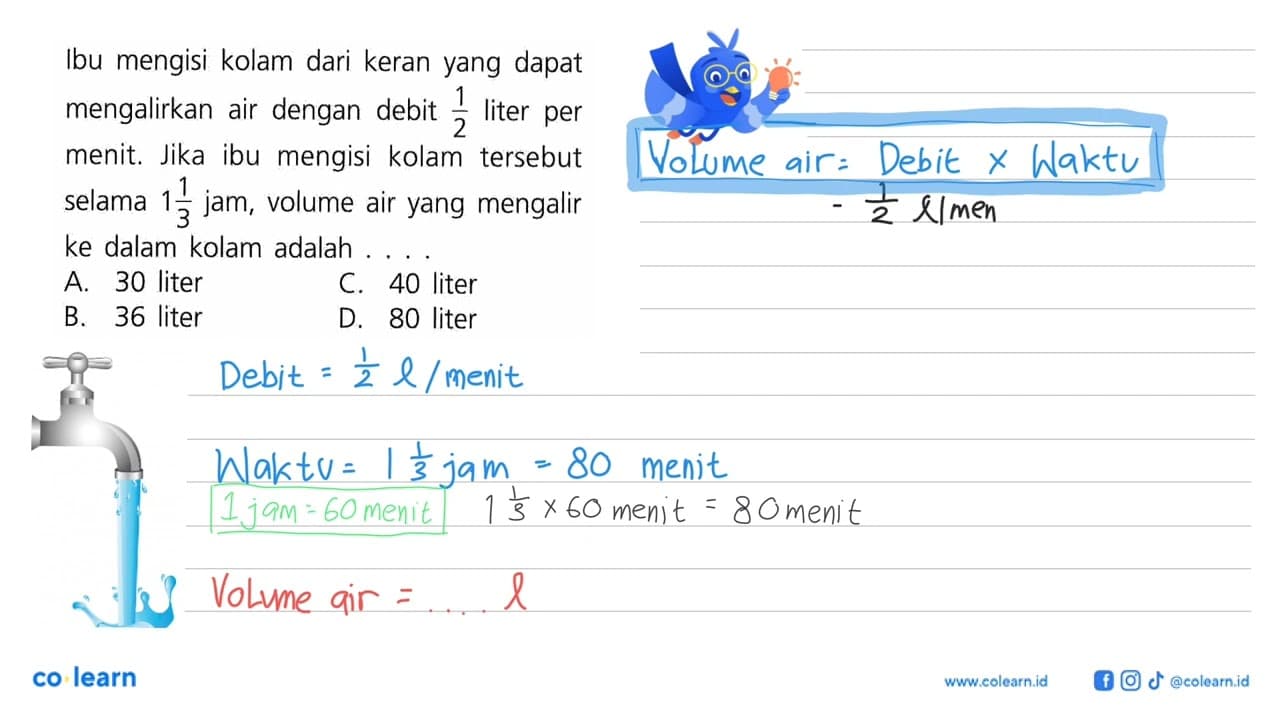 Ibu mengisi kolam dari keran yang dapat
mengalirkan air dengan debit 1/2 liter per
menit. Jika ibu mengisi kolam tersebut
selama 1 1/3 jam, volume air yang mengalir
ke dalam kolam adalah . . . .
A. 30 liter C. 40 liter
B. 36 liter D. 80 liter
Volume air = Debit × Waktu
- 1/2 l/men
Debit = 1/2 l/menit
Waktu = 1 1/3 jam = 80 menit
1 jam = 60 menit 1 1/3 × 60 menit = 80 menit
Volume air = .... l
co learn
www.colearn.id @colearn.id